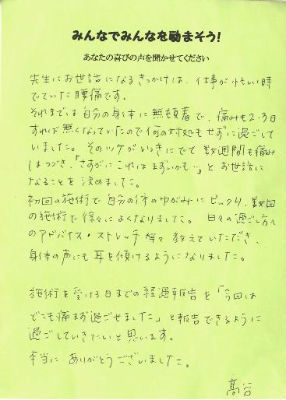 みんなでみんなを励まそう!
あなたの喜びの声を聞かせてください
先生にお世話になるきっかけは、仕事が忙しい時
でていた腰痛です。
それまでは自分の身体に無頓着で、痛みも2、3日
すれば無くなっていたので何の対処もせずに過ごして
いました。そのツケがいっきにでて数週間も痛み
はつづき、「さすがにこれはまずいかも…」とお世話に
なることを決めました。
初回の施術で自分の体のゆがみにビックリ、数回
の施術で徐々によくなりました。日々の過ごし方への
アドバイス・ストレッチ等々教えていただき、
身体の声にも耳を傾けるようになりました。
施術を受ける日までの経過報告を「今回は
どこも痛まず過ごせました」と報告できるように
過ごしていきたいと思います。
本当にありがとうございました。
髙谷